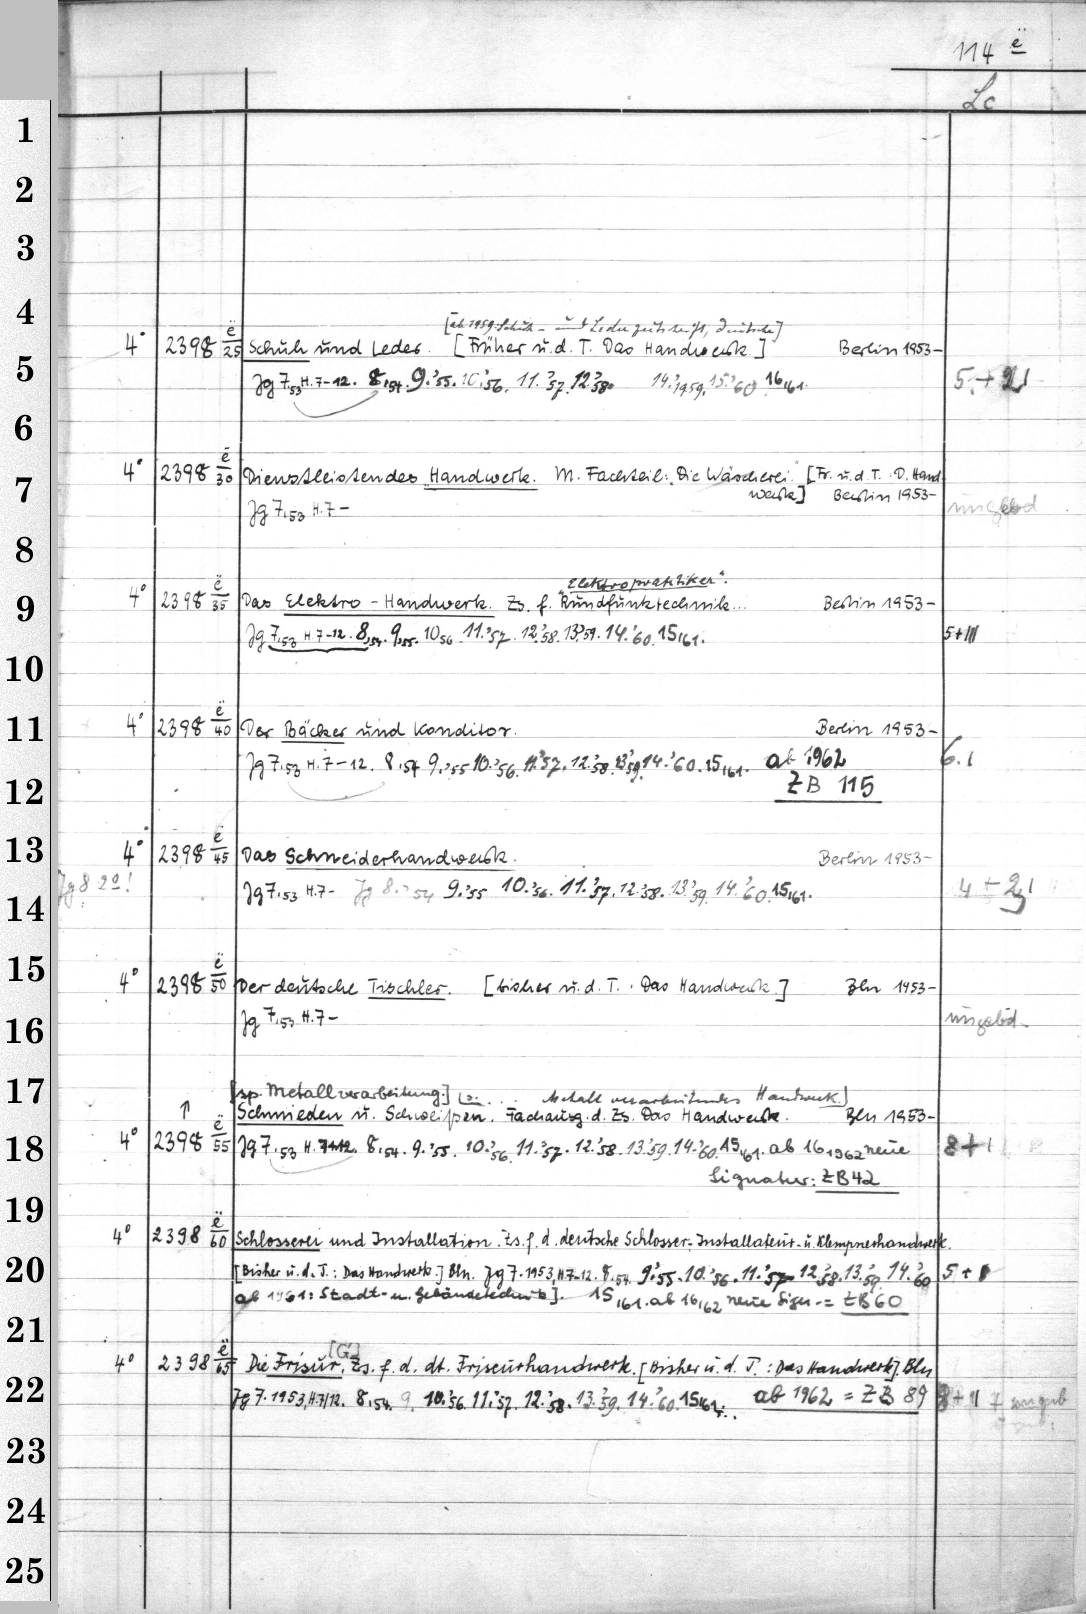 114 ë
Lc
1
2
3
4
[ab 1959: Schuh- und Lederzeitschrift, Deutsche]
4° 2398 ë/25 Schuh und Leder. [Früher u. d. T. Das Handwerk.] Berlin 1953-
5
Jg 7,53 H. 7-12. 8,54. 9.'55. 10.'56. 11.'57. 12.'58. 14.'1959. 15.'60 16,61. 5.+
6
4° 2398 ë/30 Dienstleistendes Handwerk. M. Fachteil: "Die Wäscherei." [Fr. u. d. T. D. Hand
7
werk] Berlin 1953-
Jg 7,53 H. 7- ungebd
8
"Elektropraktiker".
9
4° 2398 ë/35 Das Elektro-Handwerk. Zs. f. Rundfunktechnik... Berlin 1953-
Jg 7,53 H. 7-12. 8,54. 9,55. 10,56 11.'57. 12.'58. 13.'59. 14.'60. 15,61. 5+III
10
11
4° 2398 ë/40 Der Bäcker und Konditor. Berlin 1953-
Jg 7,53 H. 7-12. 8,54 9.'55 10.'56. 11.'57. 12.'58. 13.'59. 14.'60. 15,61. ab 1962 6.
12
ZB 115
13
4° 2398 ë/45 Das Schneiderhandwerk. Berlin 1953-
Jg 8 2°!
Jg 7,53 H. 7- Jg 8.'54 9.'55 10.'56. 11.'57. 12.'58. 13.'59. 14.'60. 15,61. 4 +
14
15
4° 2398 ë/50 Der deutsche Tischler. [bisher u. d. T. Das Handwerk.] Bln 1953-
16
Jg 7,53 H. 7- ungebd.
17
[sp. Metallverarbeitung.] ... Metall verarbeitendes Handwerk.]
↑ Schmieden u. Schweißen. Fachausg. d. Zs. Das Handwerk. Bln 1953-
18
4° 2398 ë/55 Jg 7,53 H. 7-12. 8,54. 9.'55. 10.'56. 11.'57. 12.'58. 13.'59. 14.'60. 15,61. ab 16,1962 neue 8+1
Signatur: ZB 42
19
4° 2398 ë/60 Schlosserei und Installation. Zs. f. d. deutsche Schlosser-, Installateur- u. Klempnerhandwerk.
20
[Bisher u. d. T.: Das Handwerk.] Bln. Jg 7. 1953, H. 7-12. 8,54. 9.'55. 10.'56. 11.'57 12.'58. 13.'59. 14.'60 5+
ab 1961: Stadt- u. Gebäudetechnik]. 15,61. ab 16,62 neue Sign. = ZB 60
21
4° 2398 ë/65 Die Frisur. [G] Zs. f. d. dt. Friseurhandwerk. [Bisher u. d. T.: Das Handwerk]. Bln
22
Jg 7. 1953, H. 7/12. 8,54. 9. 10.'56. 11.'57. 12.'58. 13.'59. 14.'60. 15,61. ab 1962 = ZB 89 8+II 7 ungeb
23
24
25